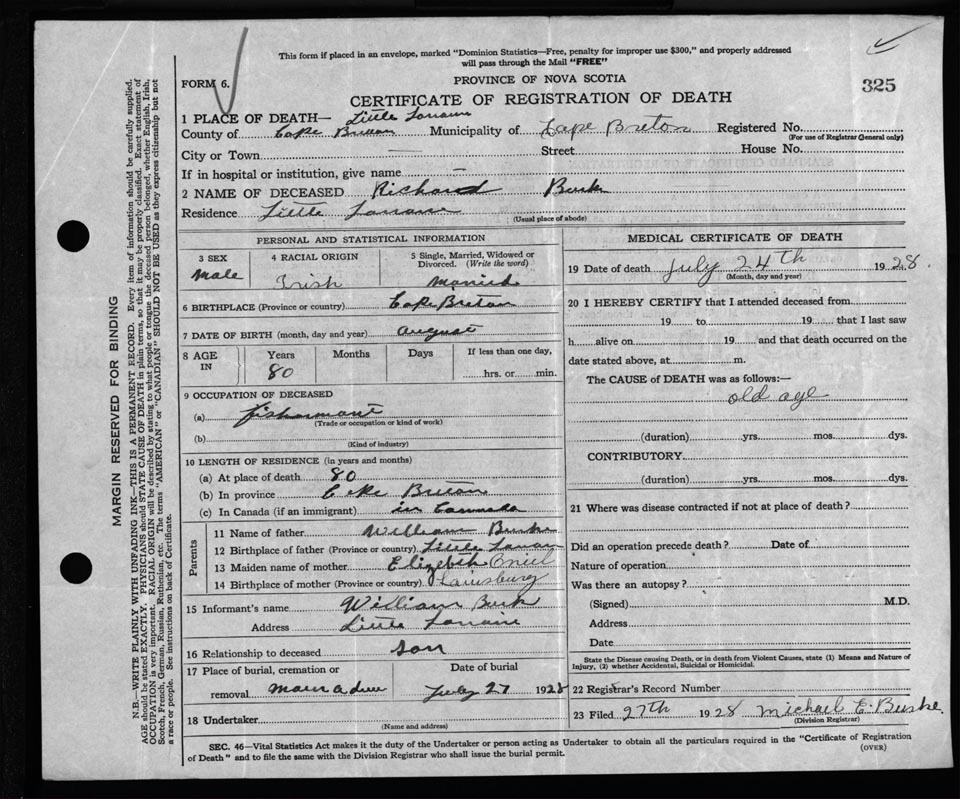 This form if placed in an envelope, marked "Dominion Statistics—Free, penalty for improper use $300," and properly addressed
will pass through the Mail "FREE"
FORM 6.
PROVINCE OF NOVA SCOTIA
325
CERTIFICATE OF REGISTRATION OF DEATH
1 PLACE OF DEATH— Little Lorraine
County of Cape Breton Municipality of Cape Breton Registered No.
(For use of Registrar General only)
City or Town Street House No.
If in hospital or institution, give name
2 NAME OF DECEASED Richard Burk
Residence Little Lorraine
(Usual place of abode)
PERSONAL AND STATISTICAL INFORMATION
3 SEX 4 RACIAL ORIGIN 5 Single, Married, Widowed or
Divorced. (Write the word)
Male Irish Married
6 BIRTHPLACE (Province or country) Cape Breton
7 DATE OF BIRTH (month, day and year) August
8 AGE IN Years Months Days If less than one day,
80 hrs. or min.
9 OCCUPATION OF DECEASED
(a)
(Trade or occupation or kind of work)
(b)
(Kind of industry)
10 LENGTH OF RESIDENCE (in years and months)
(a) At place of death 80
(b) In province Cape Breton
(c) In Canada (if an immigrant) in Cannada
Parents
11 Name of father William Burke
12 Birthplace of father (Province or country) Little Lorrain
13 Maiden name of mother Elizebeth Oniel
14 Birthplace of mother (Province or country) Louisburg
15 Informant's name William Burk
Address Little Lorraine
16 Relationship to deceased son
17 Place of burial, cremation or Date of burial
removal July 27 1928
18 Undertaker
(Name and address)
MEDICAL CERTIFICATE OF DEATH
19 Date of death July 24th 1928.
(Month, day and year)
20 I HEREBY CERTIFY that I attended deceased from
19 to 19 that I last saw
h alive on 19 and that death occurred on the
date stated above, at m.
The CAUSE OF DEATH was as follows:—
old age
(duration) yrs. mos. dys.
CONTRIBUTORY
(duration) yrs. mos. dys.
21 Where was disease contracted if not at place of death?
Did an operation precede death? Date of
Nature of operation
Was there an autopsy?
(Signed) M.D.
Address
Date
State the Disease causing Death, or in death from Violent Causes, state (1) Means and Nature of
Injury, (2) whether Accidental, Suicidal or Homicidal.
22 Registrar's Record Number
23 Filed 27th 1928 Michael E. Burke.
(Division Registrar)
SEC. 46—Vital Statistics Act makes it the duty of the Undertaker or person acting as Undertaker to obtain all the particulars required in the "Certificate of Registration
of Death" and to file the same with the Division Registrar who shall issue the burial permit.
(OVER)
MARGIN RESERVED FOR BINDING
N.B.—WRITE PLAINLY WITH UNFADING INK—THIS IS A PERMANENT RECORD. Every item of information should be carefully supplied.
AGE should be stated EXACTLY. PHYSICIANS should STATE CAUSE OF DEATH in plain terms, so that it may be properly classified. Exact statement of
OCCUPATION is very important. RACIAL ORIGIN will be described by stating to what people or tongue the deceased person belonged, whether English, Irish,
Scotch, French, German, Russian, Ruthenian, etc. The terms "AMERICAN" or "CANADIAN" SHOULD NOT BE USED as they express citizenship but not
a race or people. See instructions on back of Certificate.